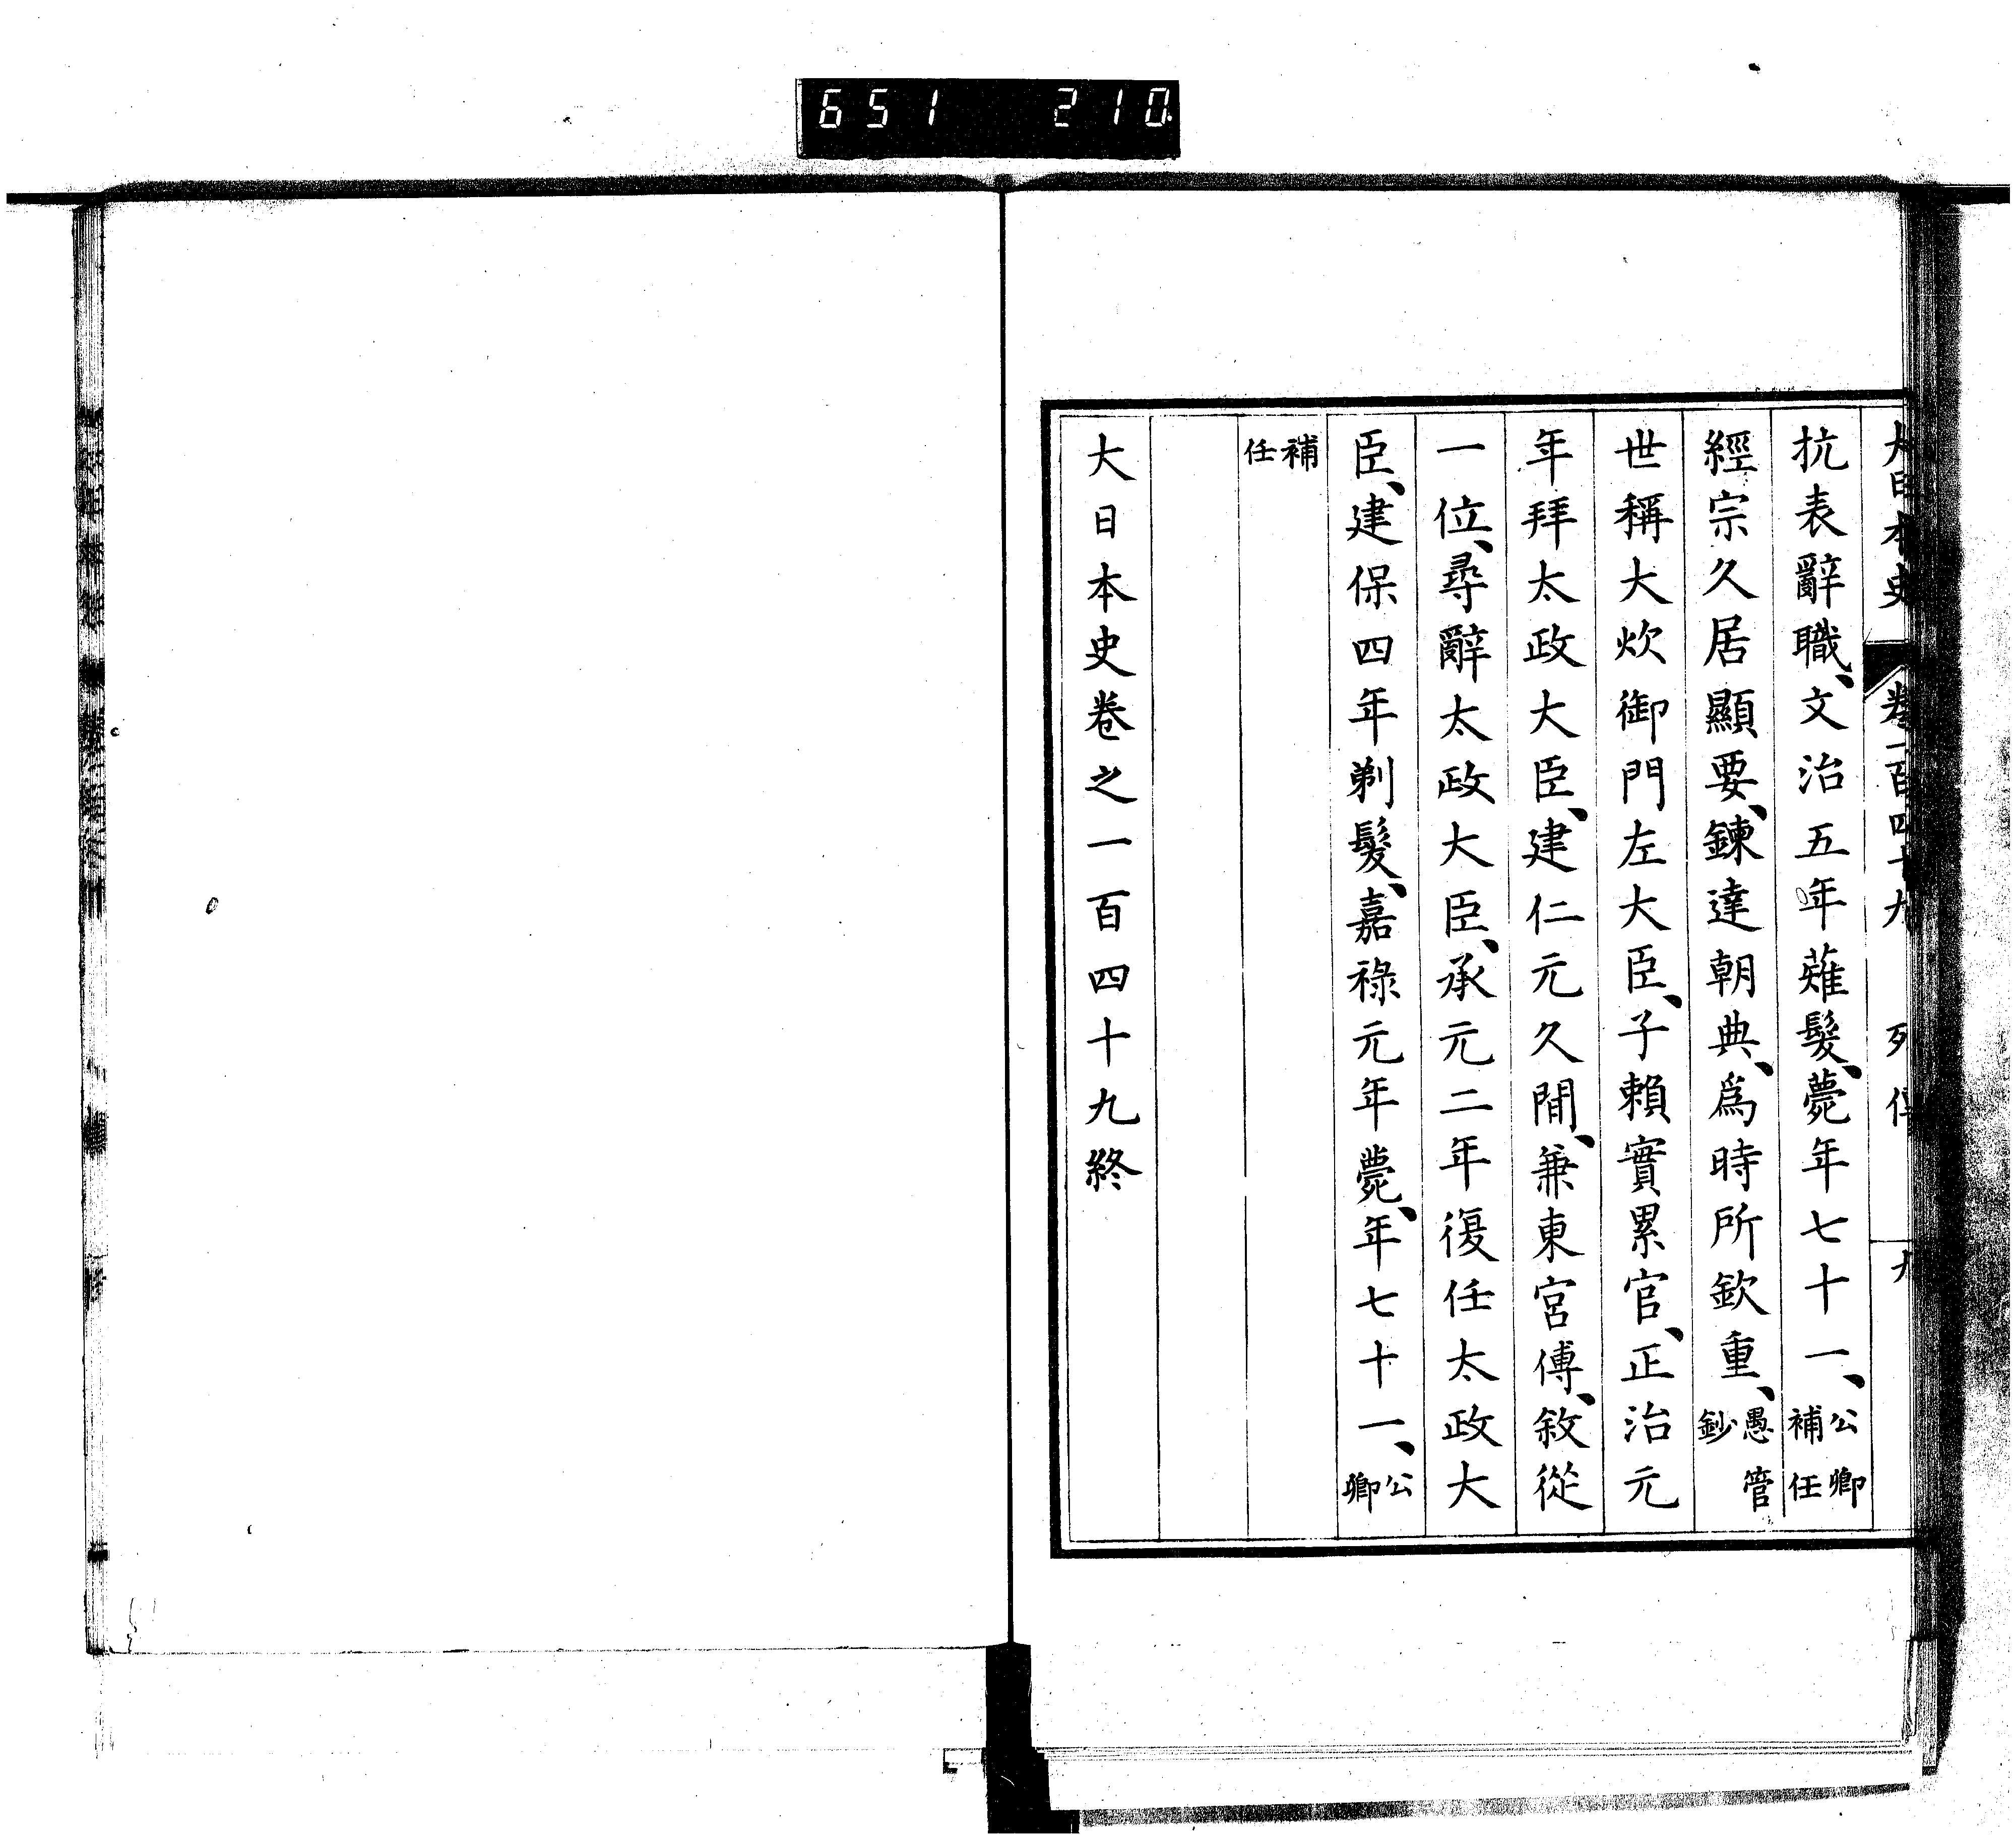 651 210
大日本史 卷一百四十九 列傳 九
抗表辭職、文治五年薙髮、薨年七十一、公卿補任
經宗久居顯要、鍊達朝典、爲時所欽重、愚管鈔
世稱大炊御門左大臣、子賴實累官、正治元
年拜太政大臣、建仁元久間、兼東宮傅、敘從
一位、尋辭太政大臣、承元二年復任太政大
臣、建保四年剃髮、嘉祿元年薨、年七十一、公卿
補任
大日本史卷之一百四十九終